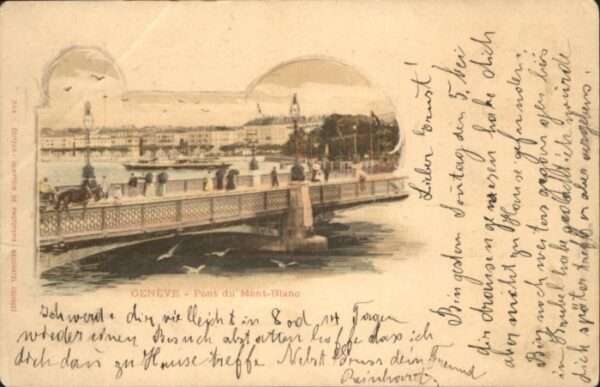 GENÈVE - Pont du Mont-Blanc
Lieber Ernst!
Bin gestern Sonntag den 5. bei
dir draussen gewesen habe dich
aber nicht zu Hause gefunden.
Bin noch weiter gegangen bis
in habe gedacht ich würde
dich später treffen aber vergebens.
Schwerde dir vielleicht in 8 od 14 Tagen
wieder einen Besuch abstatten hoffe dass ich
dich dan zu Hause treffe. Nebst Gruss dein Freund
Reinhart.